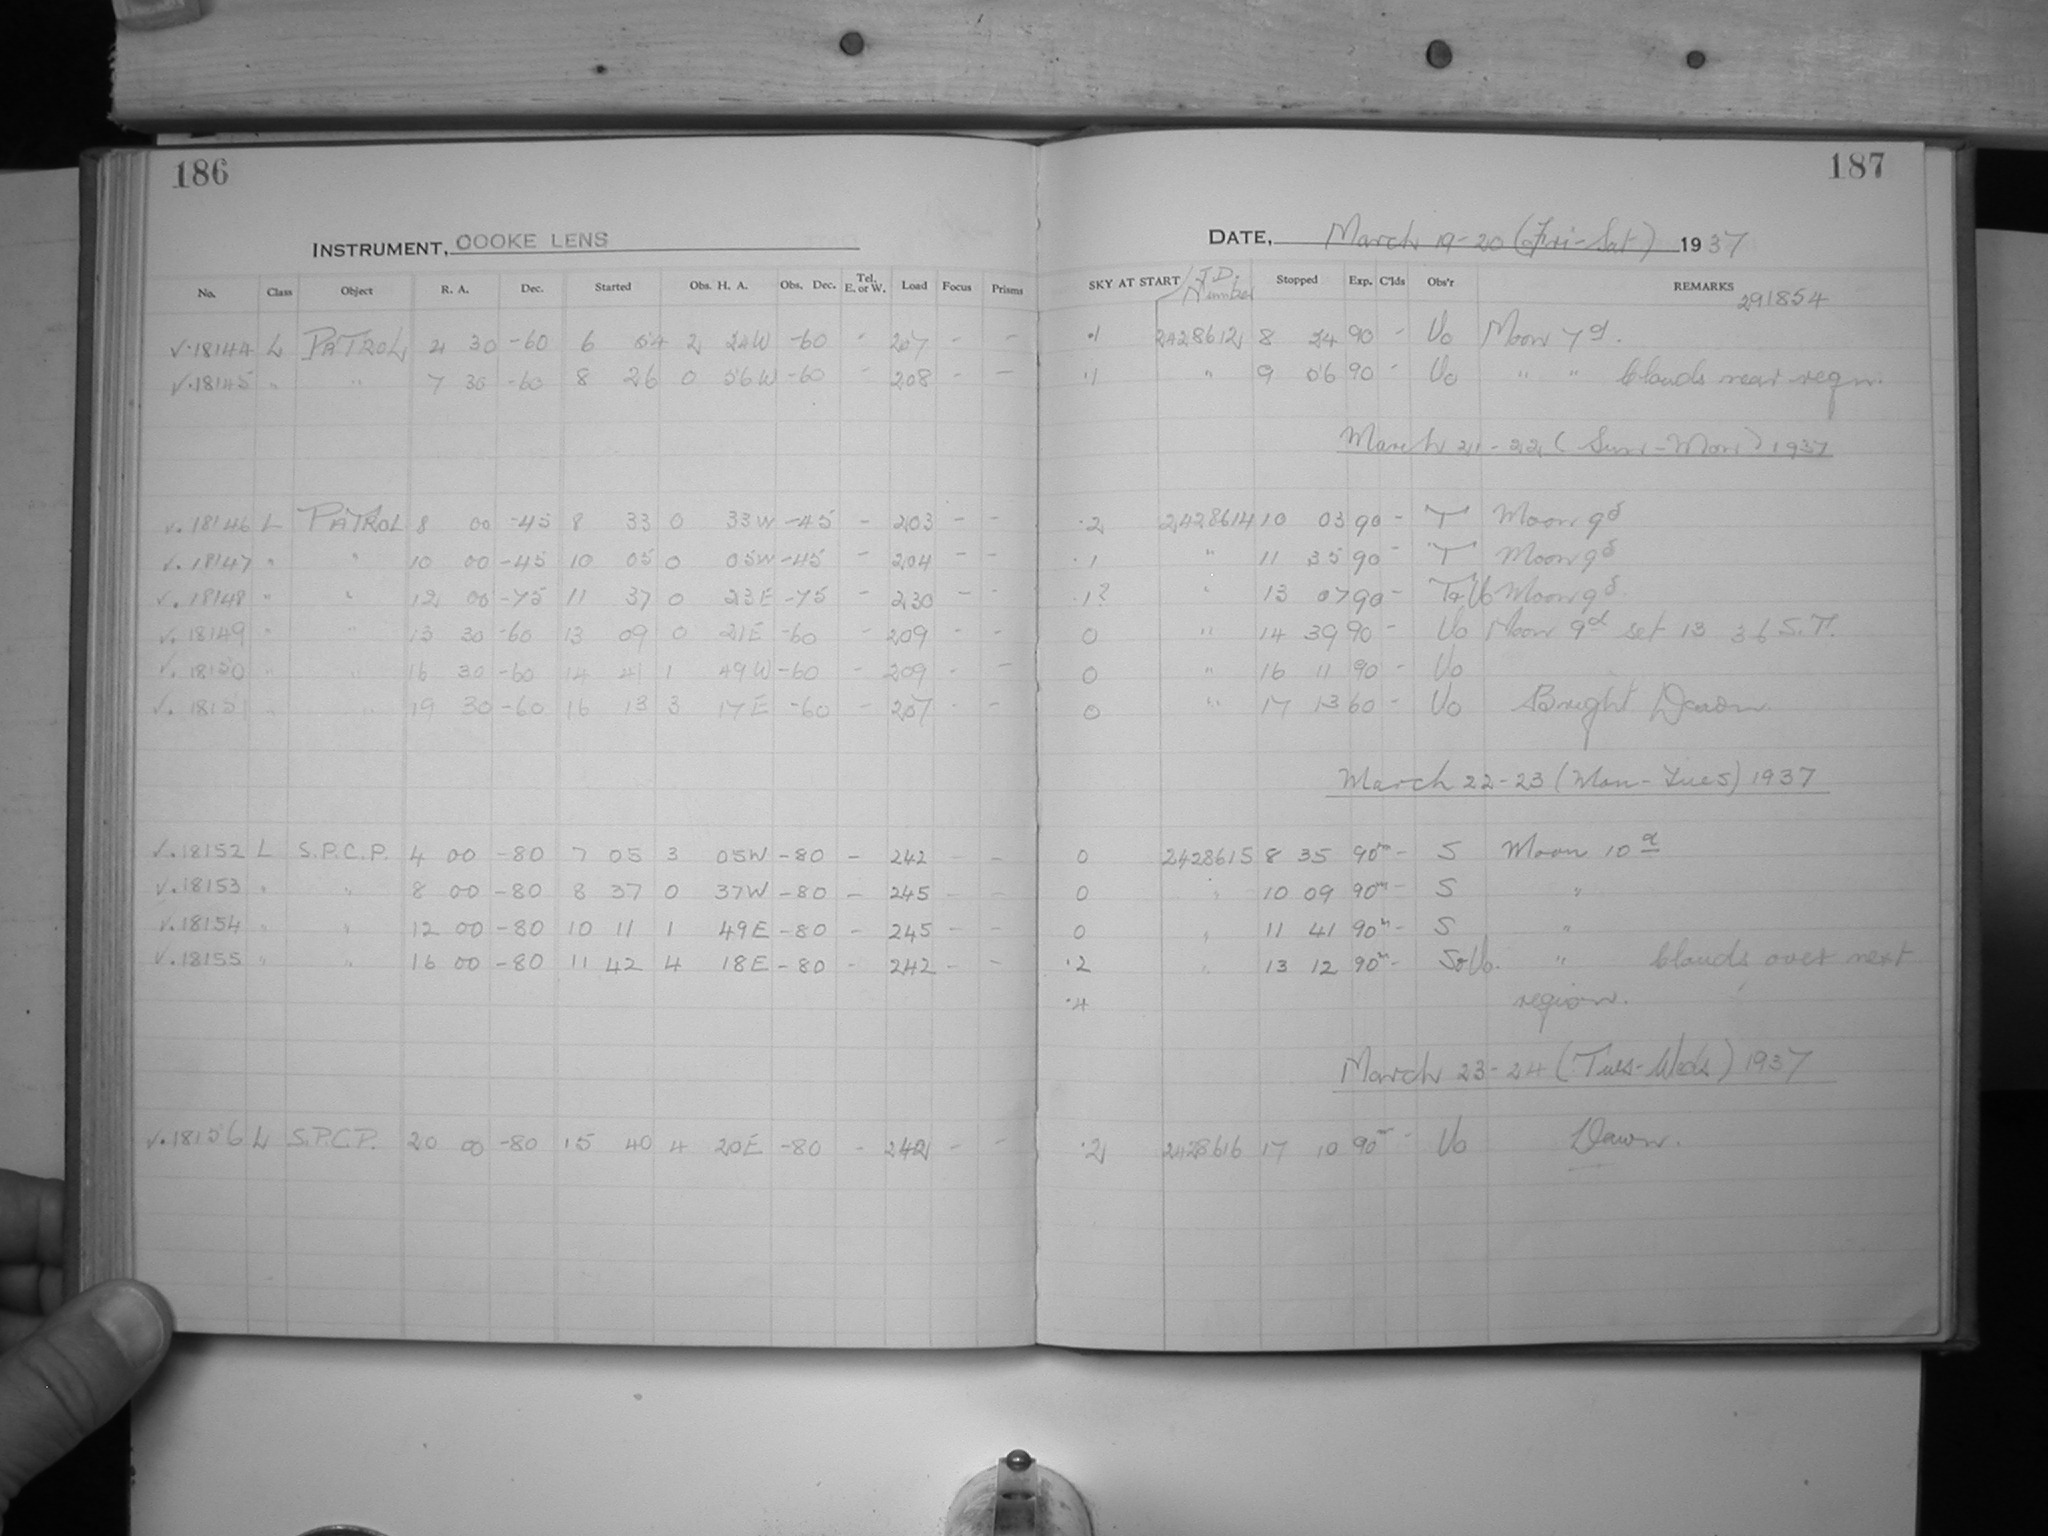 186
187
INSTRUMENT, COOKE LENS
DATE, March 19-20 (Fri-Sat) 1937
No. Class Object R. A. Dec. Started Obs. H. A. Obs. Dec. Tel. E. or W. Load Focus Prisms SKY AT START J.D. Number Stopped Exp. C'lds Obs'r REMARKS
291854
√.18144 L PATROL 4 30 -60 6 54 2 24W -60 - 207 - - .1 2428612 8 24 90 - Vo Moon 7d.
√.18145 " " 7 30 -60 8 26 0 56W -60 - 208 - - .1 " 9 56 90 - Vo " " Clouds near regn.
March 21-22 (Sun-Mon) 1937
√.18146 L PATROL 8 00 -45 8 33 0 33W -45 - 203 - - .2 2428614 10 03 90 - T Moon 9d
√.18147 " " 10 00 -45 10 05 0 05W -45 - 204 - - .1 " 11 35 90 - T Moon 9d
√.18148 " " 12 00 -75 11 37 0 23E -75 - 230 - - .1? " 13 07 90 - T&Vo Moon 9d.
√.18149 " " 13 30 -60 13 09 0 21E -60 - 209 - - 0 " 14 39 90 - Vo Moon 9d set 13 36 S.T.
√.18150 " " 16 30 -60 14 41 1 49W -60 - 209 - - 0 " 16 11 90 - Vo
√.18151 " " 19 30 -60 16 13 3 17E -60 - 207 - - 0 " 17 13 60 - Vo Bright Dawn.
March 22-23 (Mon-Tues) 1937
√.18152 L S.P.C.P. 4 00 -80 7 05 3 05W -80 - 242 - - 0 2428615 8 35 90m - S Moon 10d
√.18153 " " 8 00 -80 8 37 0 37W -80 - 245 - - 0 " 10 09 90m - S "
√.18154 " " 12 00 -80 10 11 1 49E -80 - 245 - - 0 " 11 41 90m - S "
√.18155 " " 16 00 -80 11 42 4 18E -80 - 242 - - .2 " 13 12 90m - S&Vo. " Clouds over next
.4 region.
March 23-24 (Tues-Weds) 1937
√.18156 L S.P.C.P. 20 00 -80 15 40 4 20E -80 - 242 - - .2 2428616 17 10 90m - Vo Dawn.